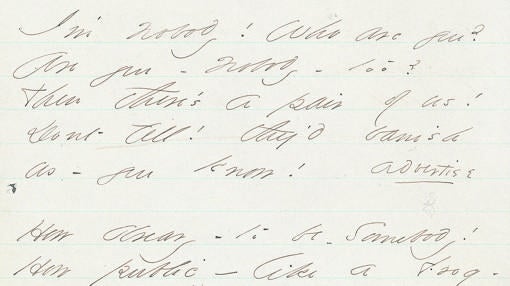 I'm Nobody! Who are you?
Are you - Nobody - too?
Then there's a pair of us!
Dont tell! they'd banish
us - you know! advertise
How dreary - to be - Somebody!
How public - like a Frog -